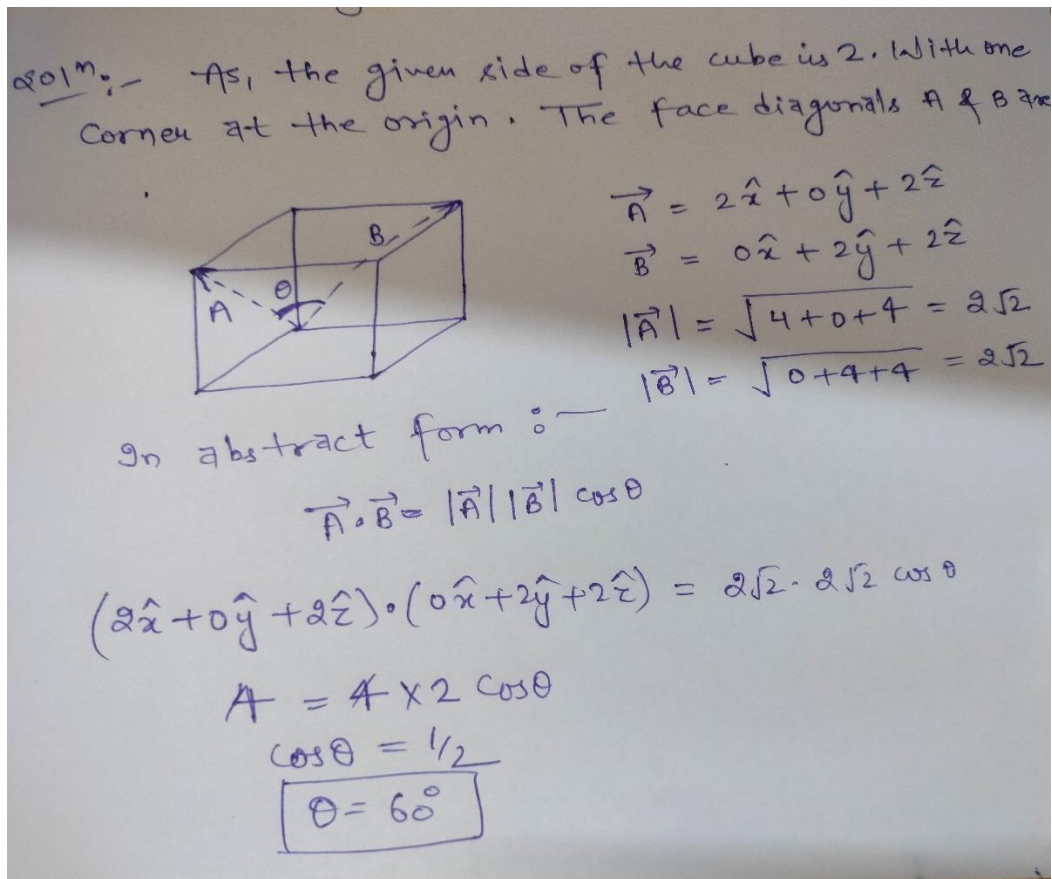 Solⁿ:- As, the given side of the cube is 2. With one
Corner at the origin. The face diagonals A & B are
B
θ
A
A⃗ = 2x̂ + 0ŷ + 2ẑ
B⃗ = 0x̂ + 2ŷ + 2ẑ
|A⃗| = √4+0+4 = 2√2
|B⃗| = √0+4+4 = 2√2
In abstract form :—
A⃗.B⃗ = |A⃗||B⃗| cosθ
(2x̂ + 0ŷ + 2ẑ).(0x̂ + 2ŷ + 2ẑ) = 2√2. 2√2 cos θ
4 = 4 x 2 Cosθ
cosθ = 1/2
θ = 60°